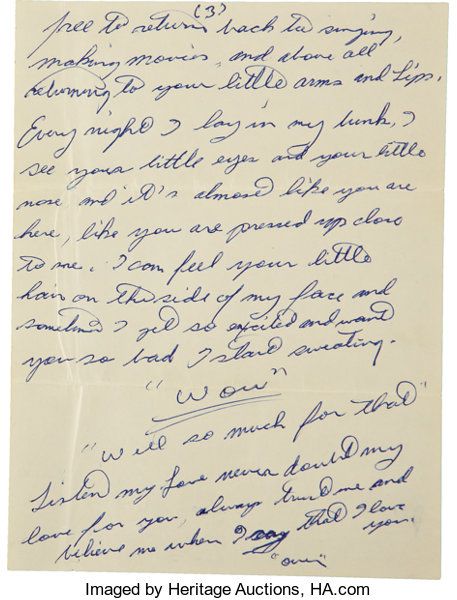 (3)
free to return back to singing,
making movies, and above all
returning to your little arms and Lips.
Every night I lay in my bunk, I
see your little eyes and your little
nose and it's almost like you are
here, like you are pressed up close
to me. I can feel your little
hair on the side of my face and
sometimes I get so excited and want
you so bad I start sweating.
"Wow"
"Well so much for that"
Listen my Love never doubt my
love for you, always trust me and
believe me when I say that I love
you.
"over"
Imaged by Heritage Auctions, HA.com